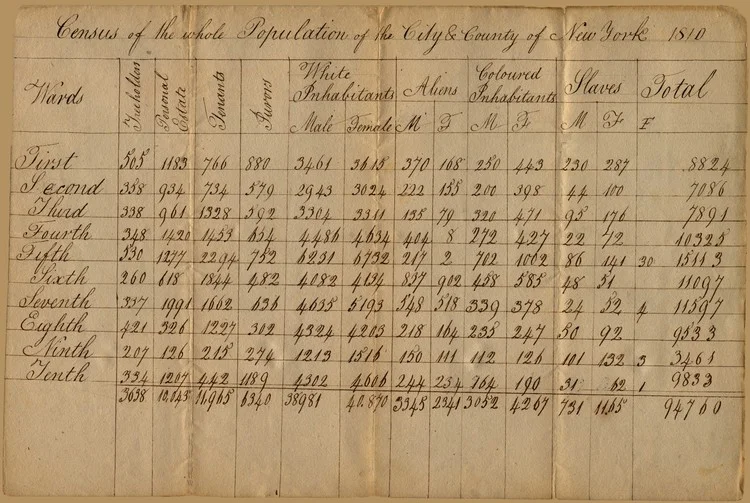 Census of the whole Population of the City & County of New York 1810
Wards Freeholders Personal Estate Tenants Jurors White Inhabitants Aliens Coloured Inhabitants Slaves Total
Male Female M F M F M F F
First 505 1183 766 880 3461 3615 370 168 250 443 230 287 8824
Second 358 934 734 579 2943 3024 222 155 200 398 44 100 7086
Third 338 961 1328 392 3304 3311 135 79 320 471 95 176 7891
Fourth 348 1420 1453 654 4486 4634 404 8 272 427 22 72 10325
Fifth 530 1277 2294 752 6231 6732 217 2 702 1002 86 141 30 15113
Sixth 260 618 1844 482 4082 4134 837 902 458 585 48 51 11097
Seventh 337 1991 1662 636 4635 5193 548 518 339 378 24 52 4 11597
Eighth 421 326 1227 302 4324 4203 218 164 235 247 50 92 9533
Ninth 207 126 215 274 1213 1515 150 111 112 126 101 132 3 3461
Tenth 334 1207 442 1189 4302 4606 244 234 164 190 31 62 1 9833
3638 10,043 11,965 6340 38981 40,870 3345 2341 3052 4267 731 1165 94760